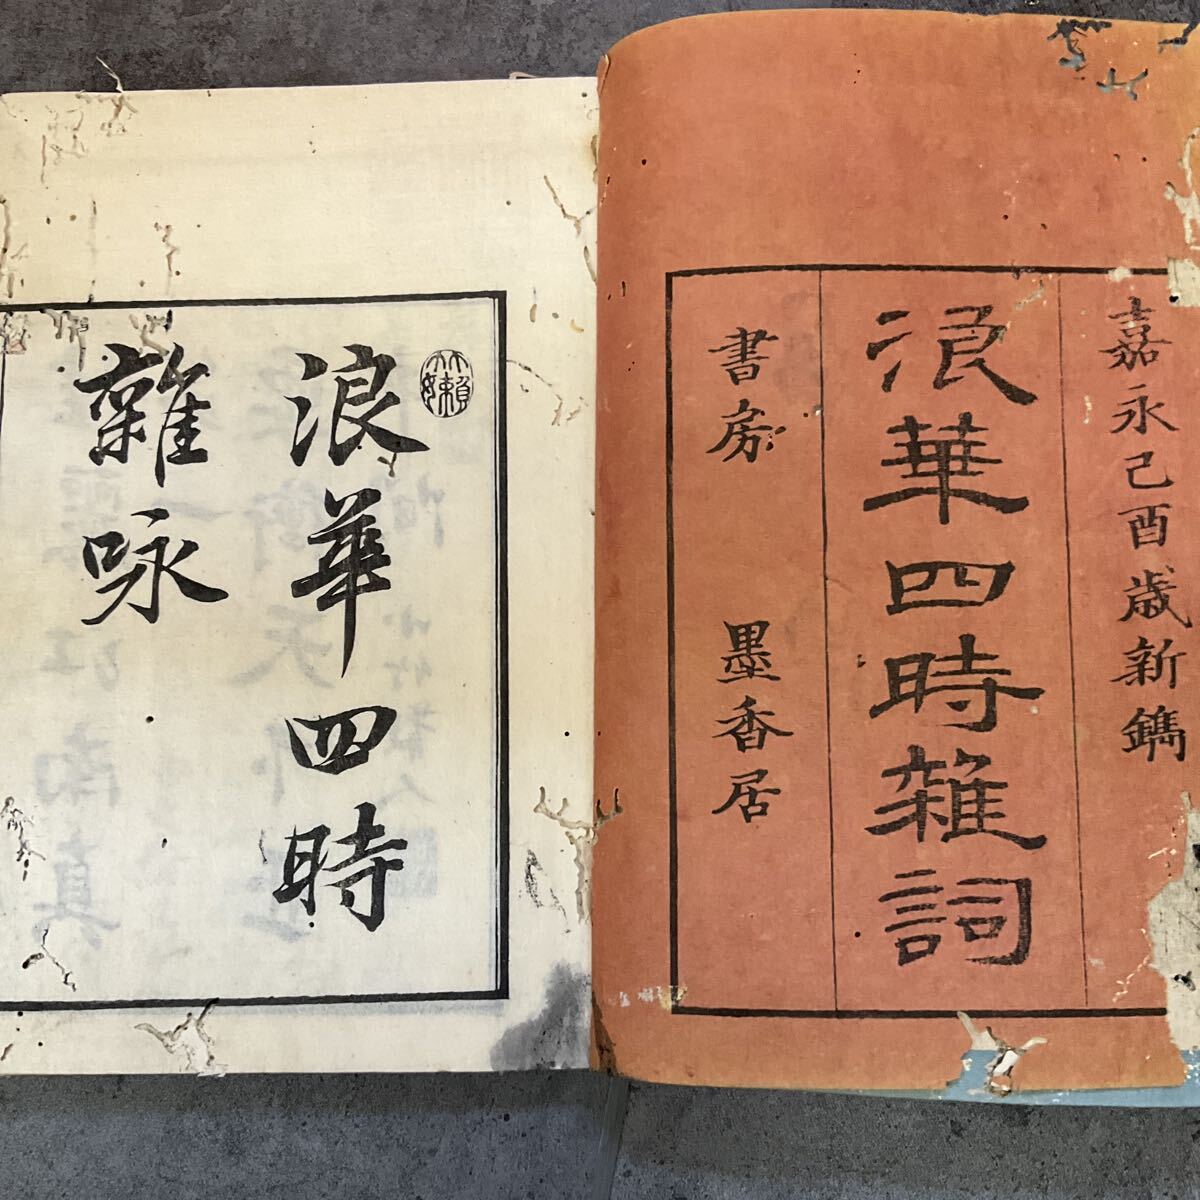 嘉永己酉歳新鐫
浪華四時雑詞
書房 墨香居
浪華四時
雜咏